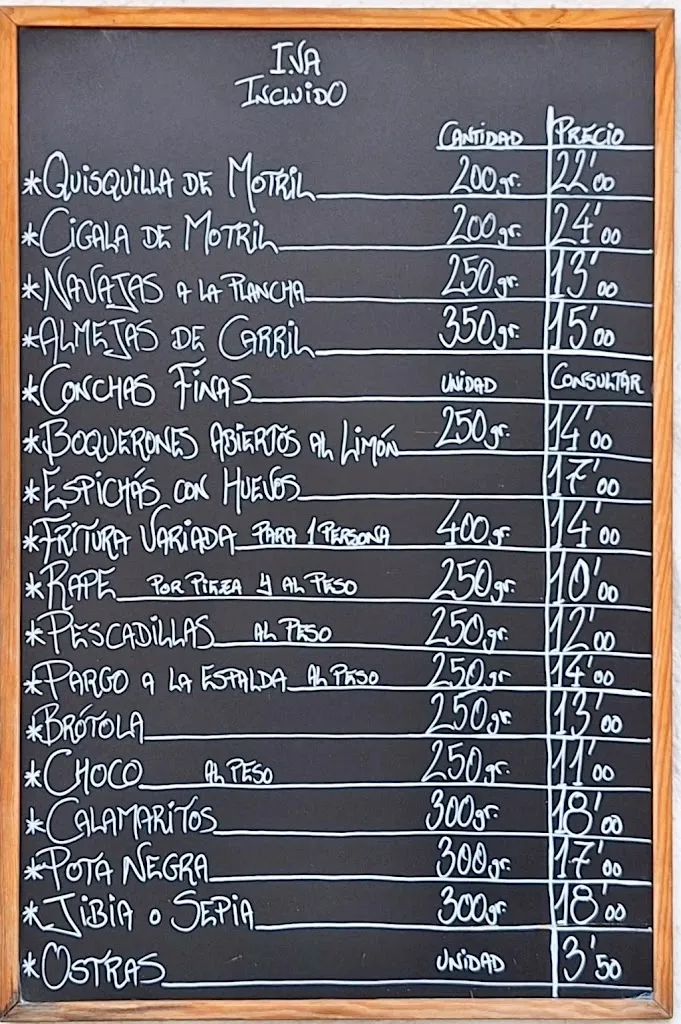 I.VA
INCLUIDO
CANTIDAD PRECIO
*QUISQUILLA DE MOTRIL 200gr. 22'00
*CIGALA DE MOTRIL 200gr. 24'00
*NAVAJAS A LA PLANCHA 250gr. 13'00
*ALMEJAS DE CARRIL 350gr. 15'00
*CONCHAS FINAS UNIDAD CONSULTAR
*BOQUERONES ABIERTOS AL LIMÓN 250gr. 14'00
*ESPICHÁS CON HUEVOS 17'00
*FRITURA VARIADA PARA 1 PERSONA 400gr. 14'00
*RAPE POR PIEZA Y AL PESO 250gr. 10'00
*PESCADILLAS AL PESO 250gr. 12'00
*PARGO A LA ESPALDA AL PESO 250gr. 14'00
*BRÓTOLA 250gr. 13'00
*CHOCO AL PESO 250gr. 11'00
*CALAMARITOS 300gr. 18'00
*POTA NEGRA 300gr. 17'00
*JIBIA O SEPIA 300gr. 18'00
*OSTRAS UNIDAD 3'50